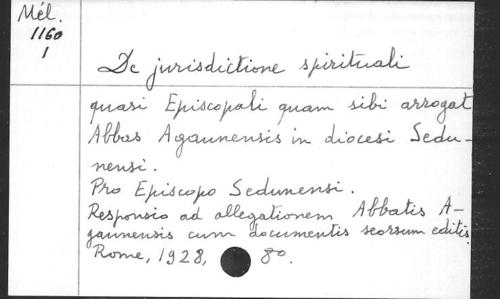 Mél.
1160
1
De jurisdictione spirituali
quasi Episcopali quam sibi arrogat
Abbas Agaunensis in diocesi Sedu-
nensi.
Pro Episcopo Sedunensi.
Responsio ad allegationem Abbatis A-
gaunensis cum documentis seorsum editis.
Rome, 1928, 8o.